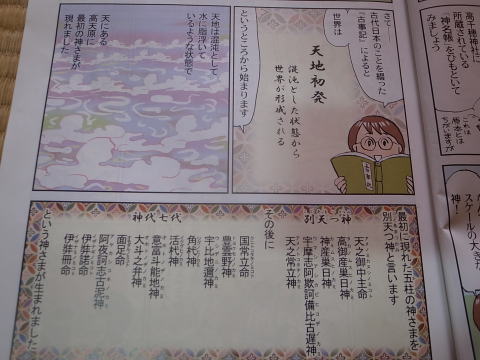 高千穂神社に
所蔵されている
「神名帳」をひもといて
みましょう
これは
原本とは
ちがいますが
さて
古代日本のことを綴った
『古事記』によると
世界は
天地初発
混沌とした状態から
世界が形成される
というところから始まります
天地は混沌として
水に脂浮いて
いるような状態で
天にある
高天原に
最初の神さまが
現れました
スケールの大きな
神！
最初に現れた五柱の神さまを
別天つ神と言います
別天つ神
天之御中主命
高御産巣日神
神産巣日神
宇摩志阿斯訶備比古遅神
天之常立神
その後に
神代七代
国常立命
豊雲野神
宇比地邇神
角杙神
活杙神
意富斗能地神
大斗之弁神
面足命
阿夜訶志古泥神
伊弉諾命
伊弉冊命
という神さまが生まれました